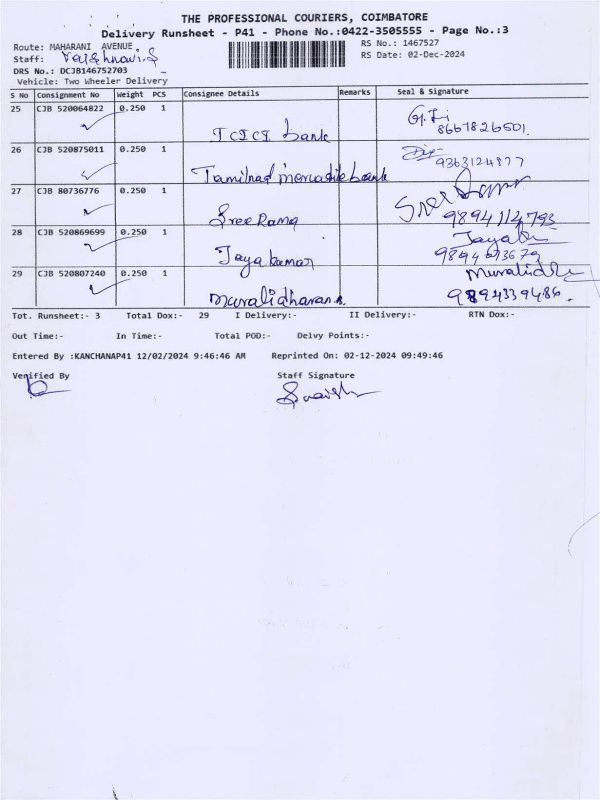 THE PROFESSIONAL COURIERS, COIMBATORE
Delivery Runsheet - P41 - Phone No.:0422-3505555 - Page No.:3
Route: MAHARANI AVENUE
RS No.: 1467527
Staff: Vaishnavi.S
RS Date: 02-Dec-2024
DRS No.: DCJB146752703
Vehicle: Two Wheeler Delivery
S No Consignment No Weight PCS Consignee Details Remarks Seal & Signature
25 CJB 520064822 0.250 1
ICICI bank
8667826501
26 CJB 520875011 0.250 1
Tamilnad mercantile bank
9363124877
27 CJB 80736776 0.250 1
Sree Rama
9894114793
28 CJB 520869699 0.250 1
Jayakumar
29 CJB 520807240 0.250 1
Muralidharan.
9894339486.
Tot. Runsheet:- 3 Total Dox:- 29 I Delivery:- II Delivery:- RTN Dox:-
Out Time:- In Time:- Total POD:- Delvy Points:-
Entered By :KANCHANAP41 12/02/2024 9:46:46 AM Reprinted On: 02-12-2024 09:49:46
Verified By Staff Signature